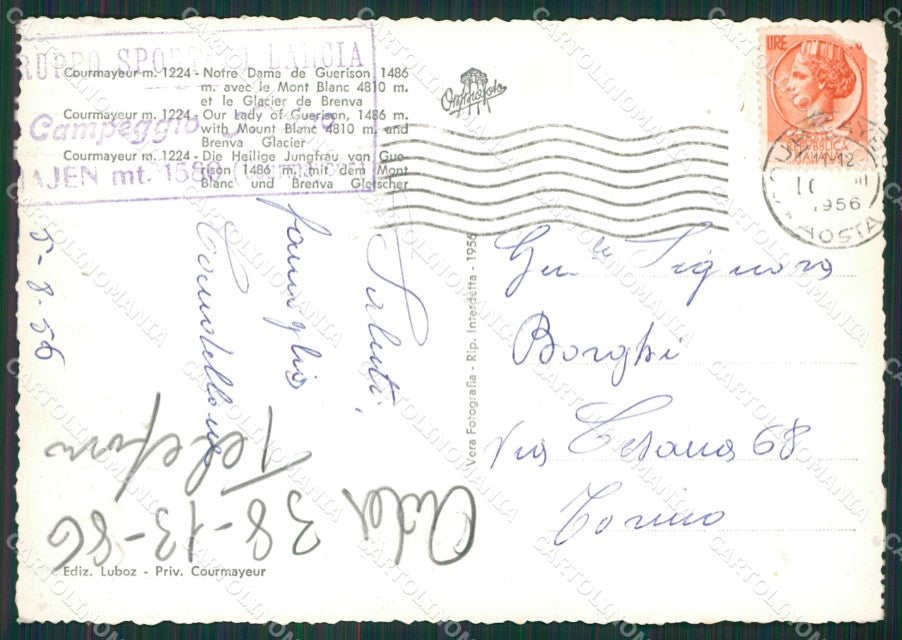 RUPPO SPOR LANCIA
Campeggio
AJEN mt. 1588
Courmayeur m. 1224 - Notre Dame de Guerison 1486
m. avec le Mont Blanc 4810 m.
et le Glacier de Brenva
Courmayeur m. 1224 - Our Lady of Guerison, 1486 m.
with Mount Blanc 4810 m. and
Brenva Glacier
Courmayeur m. 1224 - Die Heilige Jungfrau von Gue-
rison 1486 m. mit dem Mont
Blanc und Brenva Gletscher
5-8-56
Saluti
famiglia
Ediz. Luboz - Priv. Courmayeur
Vera Fotografia - Rip. Interdetta - 1956
LIRE
REPVBBLICA
ITALIANA
1956
AOSTA
Gen.le Signora
Borghi
Via Cesana 68
Torino
Telefon
38-13-86
CARTOLINOMANIA